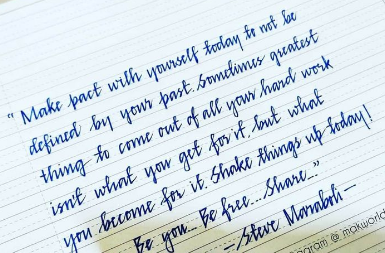 "Make pact with yourself today to not be
defined by your past. Sometimes greatest
thing to come out of all your hard work
isn't what you get for it, but what
you become for it. Shake things up today!
Be you... Be free... Share..."
- Steve Maraboli -
@_makworld